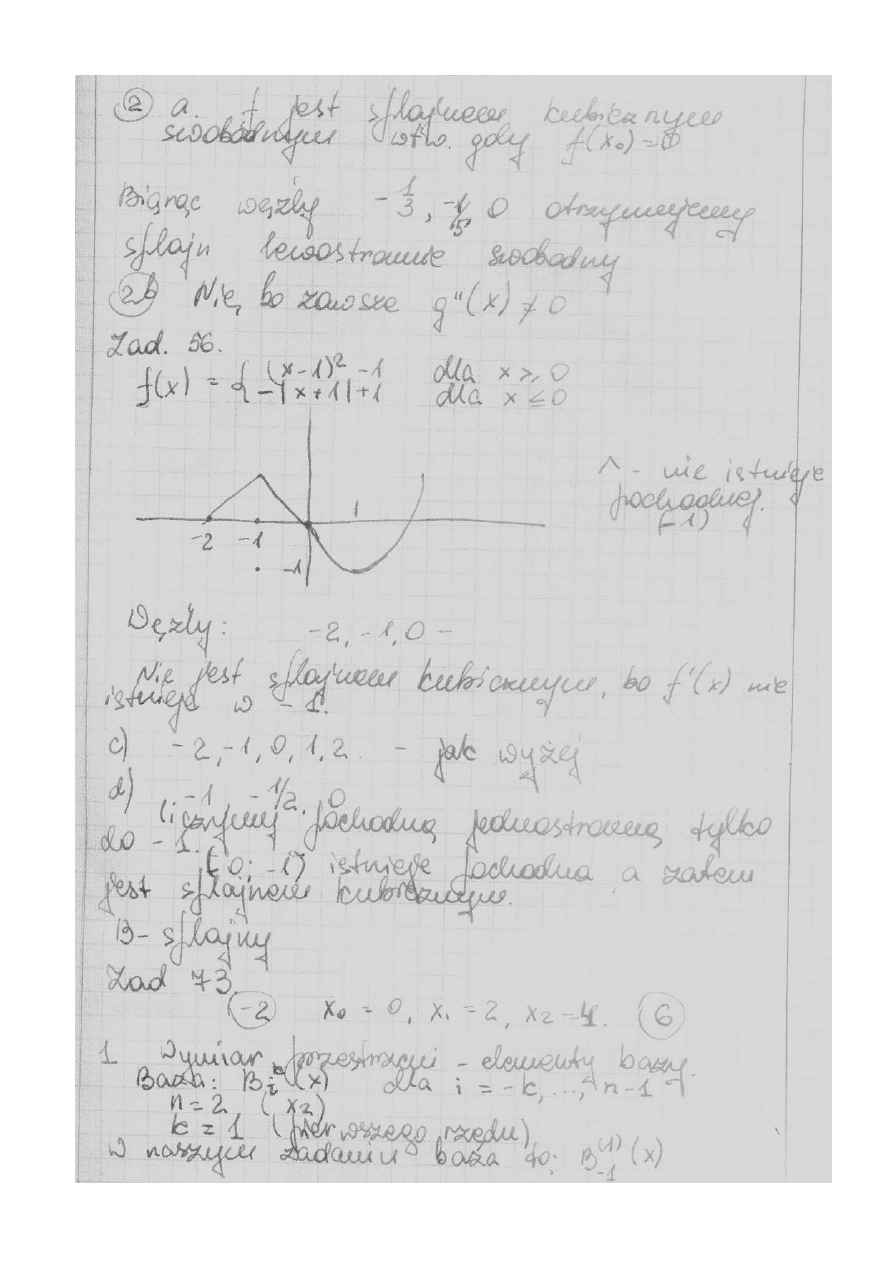 ② a. f jest splajnem kubicznym
swobodnym wtw. gdy f(x₀) = 0
Biorąc węzły -1/3, -1/5, 0 otrzymujemy
splajn lewostronnie swobodny
②b Nie, bo zawsze g"(x) ≠ 0
Zad. 56.
f(x) = { (x-1)² -1 dla x ≥ 0
-|x+1|+1 dla x ≤ 0
^ - nie istnieje
pochodnej
(-1)
1
-2 -1
-1
Węzły: -2, -1, 0 -
Nie jest splajnem kubicznym, bo f'(x) nie
istnieje w -1.
c) -2, -1, 0, 1, 2. - jak wyżej
d) -1 -1/2, 0
liczymy pochodną jednostronną tylko
do -1.
(0; -1) istnieje pochodna a zatem
jest splajnem kubicznym.
B- splajny
Zad 73.
-2 x₀ = 0, x₁ = 2, x₂ = 4. 6
1 Wymiar przestrzeni - elementy bazy.
Baza: Bᵢᵏ(x) dla i = -k, ..., n-1
n = 2 (x₂)
k = 1 (pierwszego rzędu)
W naszym zadaniu baza to: B₋₁⁽¹⁾(x)